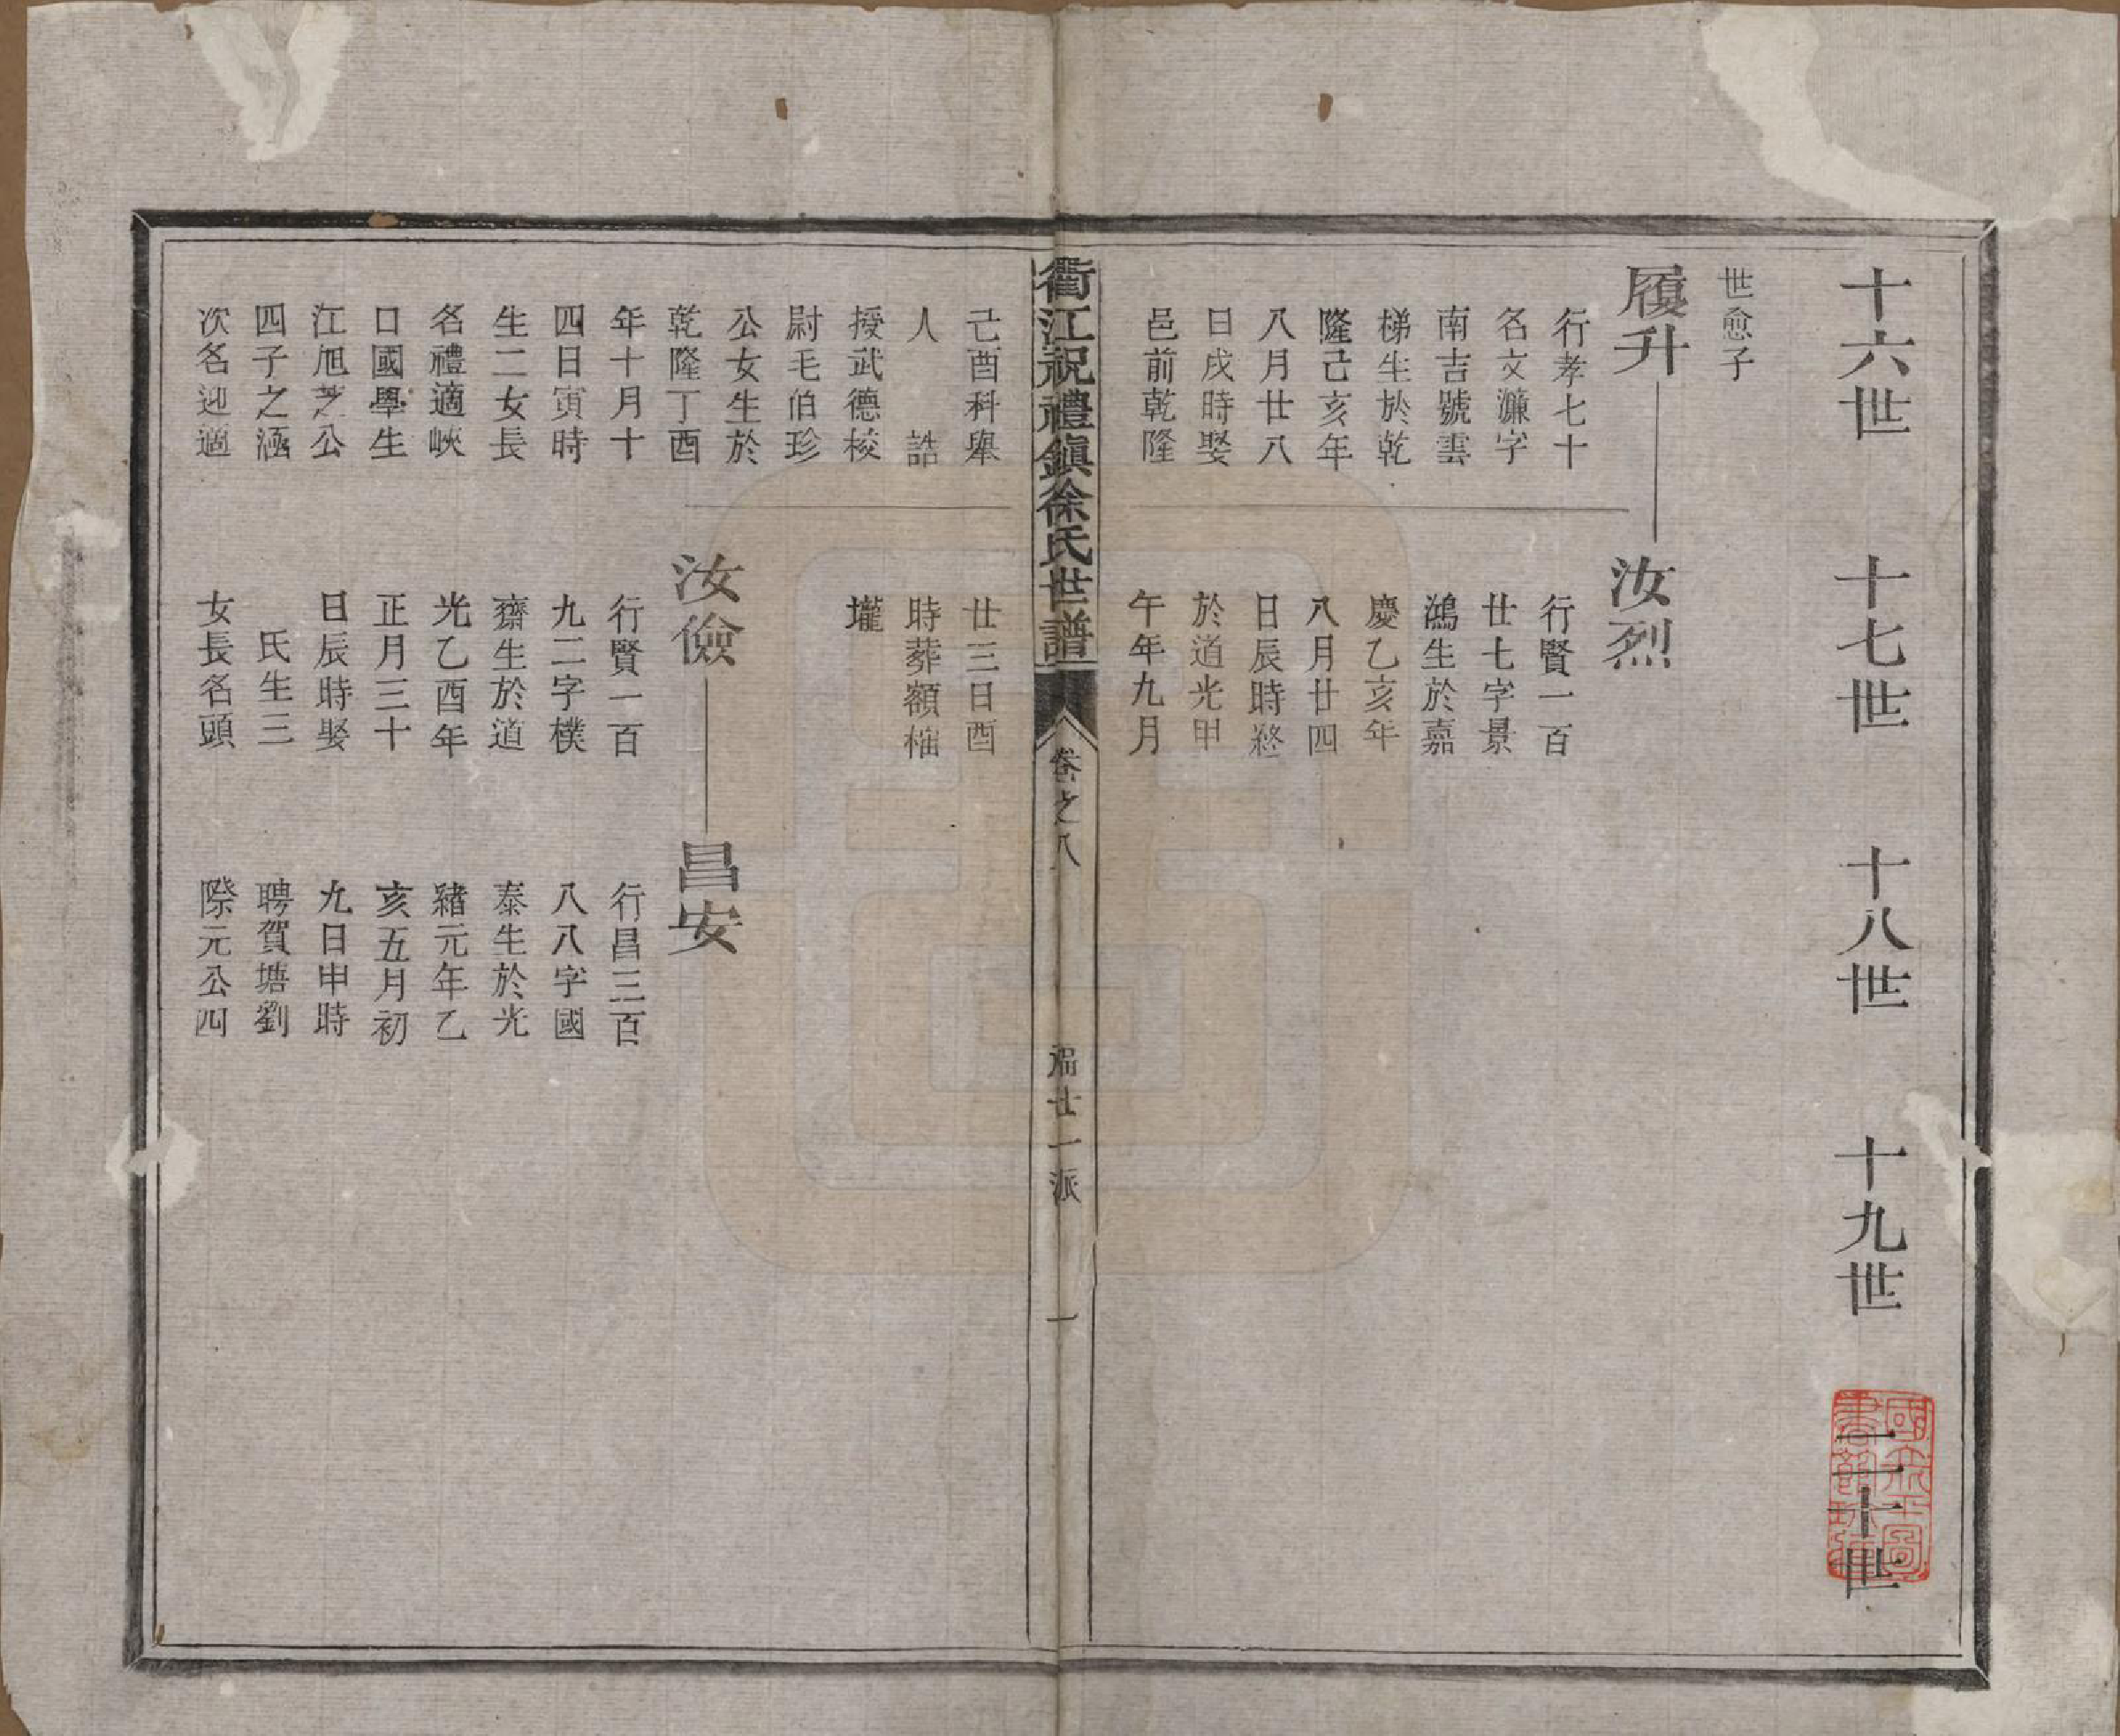 十六世　十七世　十八世　十九世　二十世
世愈子
履升　汝烈
行孝七十
名文濂字
南吉號雲
梯生於乾
隆己亥年
八月廿八
日戌時娶
邑前乾隆
行賢一百
廿七字景
鴻生於嘉
慶乙亥年
八月廿四
日辰時終
於道光甲
午年九月
衢江祝禮鎮徐氏世譜　卷之八　廿一派　一
己酉科舉
人　誥
授武德校
尉毛伯珍
公女生於
乾隆丁酉
年十月十
四日寅時
生二女長
名禮適峽
口國學生
江旭芝公
四子之涵
次名迎適
廿三日酉
時葬額楮
壠
汝儉　昌安
行賢一百
九二字樸
齋生於道
光乙酉年
正月三十
日辰時娶
氏生三
女長名頭
行昌三百
八八字國
泰生於光
緒元年乙
亥五月初
九日申時
聘賀塘劉
際元公四